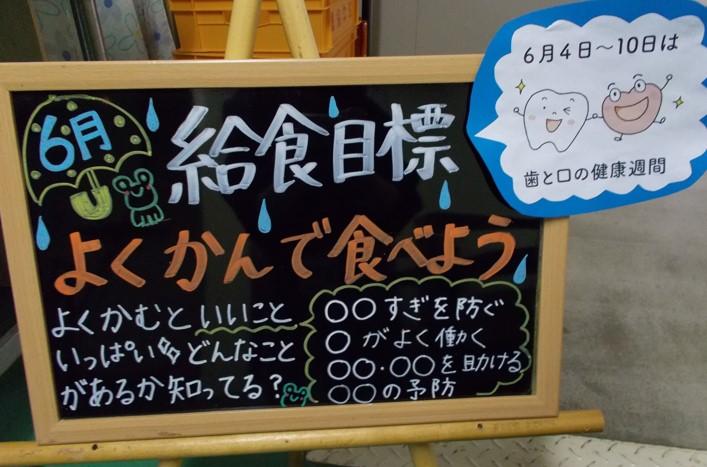 6月
給食目標
よくかんで食べよう
よくかむといいこと
いっぱい
どんなこと
があるか知ってる?
○○すぎを防ぐ
○がよく働く
○○・○○を助ける
○○の予防
6月4日～10日は
歯と口の健康週間